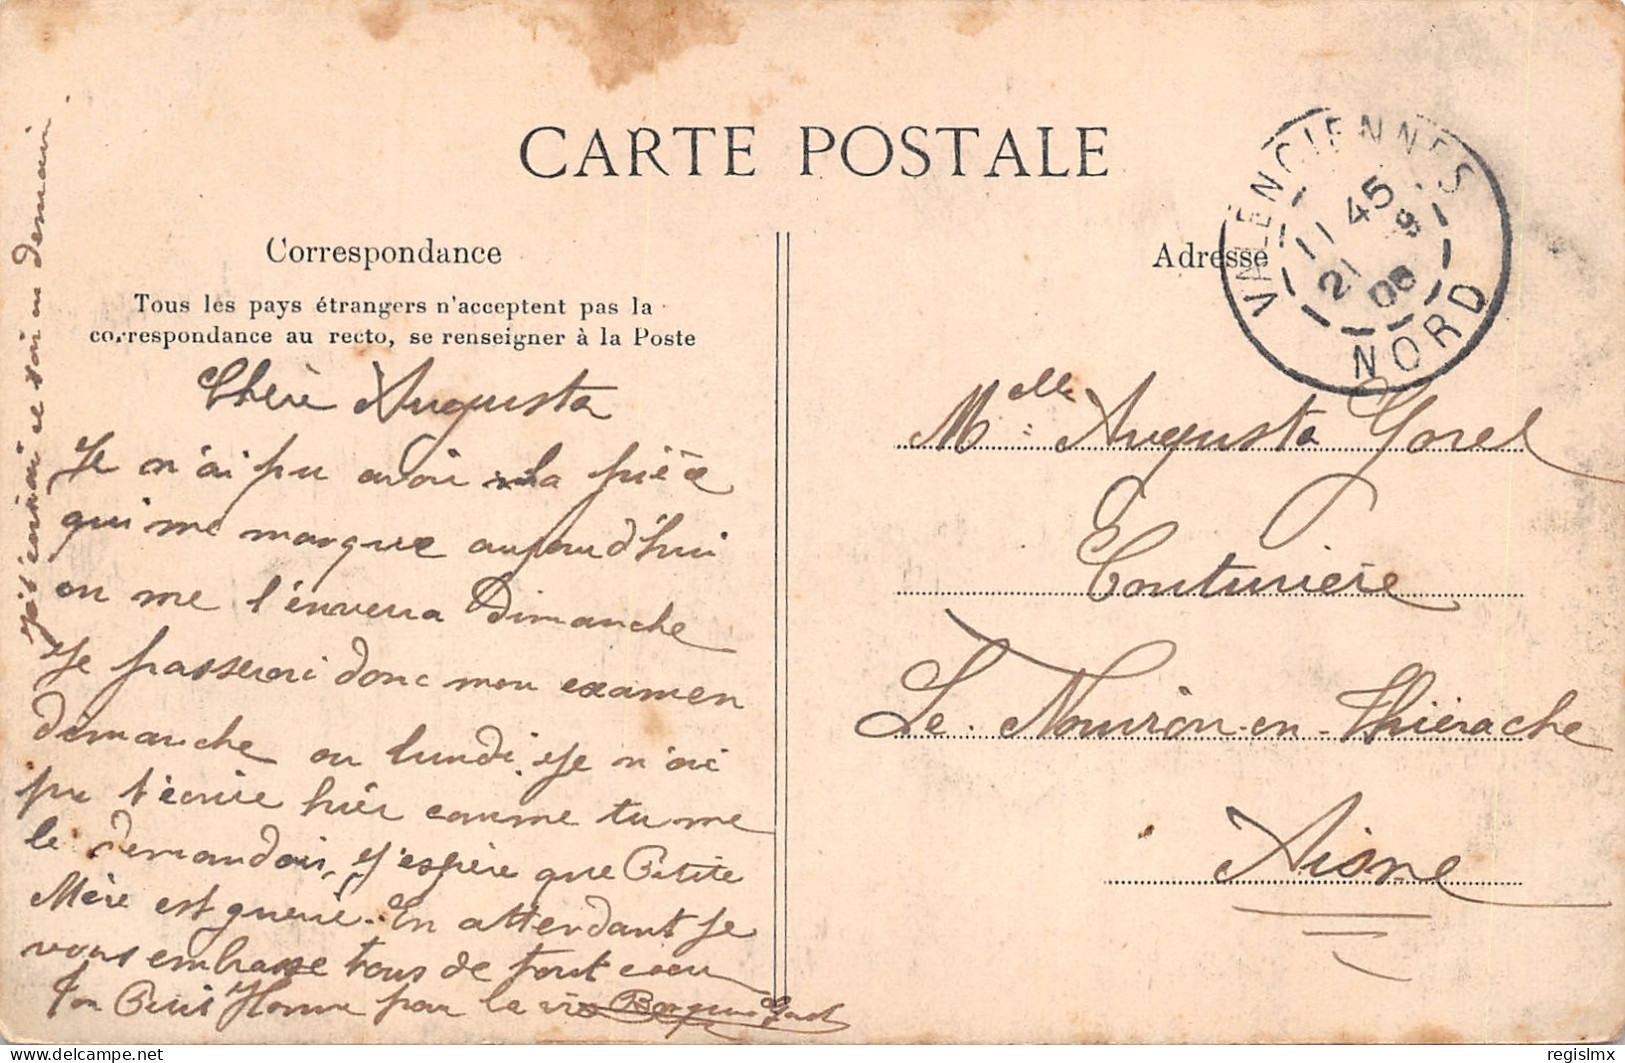 CARTE POSTALE
Correspondance
Tous les pays étrangers n'acceptent pas la
correspondance au recto, se renseigner à la Poste
Chère Augusta
Je n'ai pu avoir la pièce
qui me manque aujourd'hui
on me l'enverra Dimanche
Je passerai donc mon examen
dimanche ou lundi. Je n'ai
pu t'écrire hier comme tu me
le demandais, J'espère que Petite
Mère est guerie. En attendant je
vous embrasse tous de tout coeur
Ton Petit Homme pour la vie
je t'écrirai et voir en demain
Adresse
VALENCIENNES
11 45
21 9
06
NORD
Melle Augusta Gorel
Couturière
Le Nouvion-en-Thiérache
Aisne
delcampe.net
regislmx